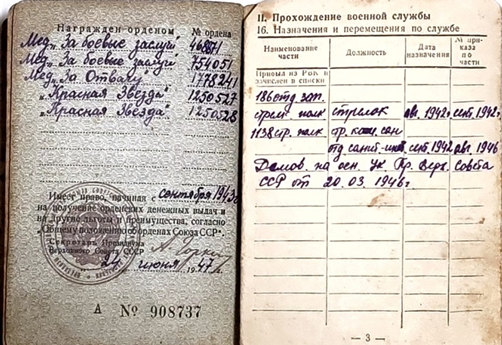 Награжден орденом
№ ордена
Мед. „За боевые заслуги" 468871
Мед. „За боевые заслуги" 754051
Мед. „За Отвагу" 1778241
„Красная Звезда" 1250527
„Красная Звезда" 1250528
Имеет право, начиная с сентября 1943г
на получение орденских денежных выдач и
на другие льготы и преимущества, согласно
«Общему положению об орденах Союза ССР».
Секретарь Президиума
Верховного Совета СССР
24 июня 1947г.
А № 908737
II. Прохождение военной службы
16. Назначения и перемещения по службе
Наименование части
Должность
Дата назначения
№ приказа по части
Прибыл из РВК и
зачислен в списки
186 отд. зап.
стрел. полк стрелок авг. 1942г. сент. 1942г.
1138 стр. полк
отд. сент. 1942 авг. 1946
Демов. на осн. Ук. Пр. Верх. Совета
ССР от 20.03.1946г
— 3 —